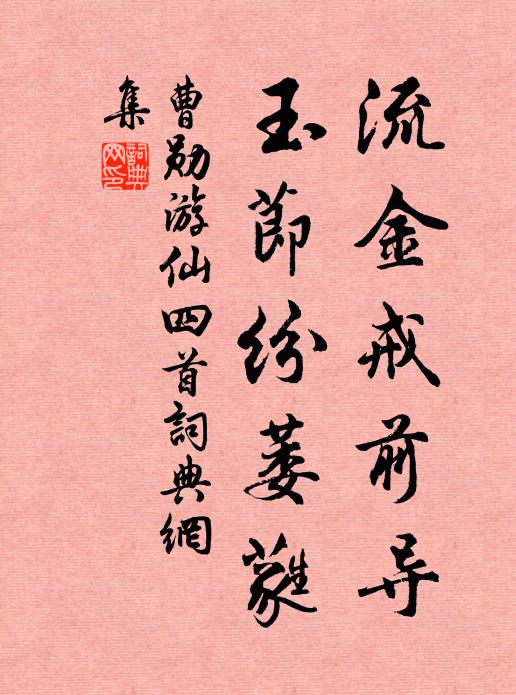 流金戒前导
玉節纷萎蕤
曹勋游仙四首詞典網
集
詞典網印